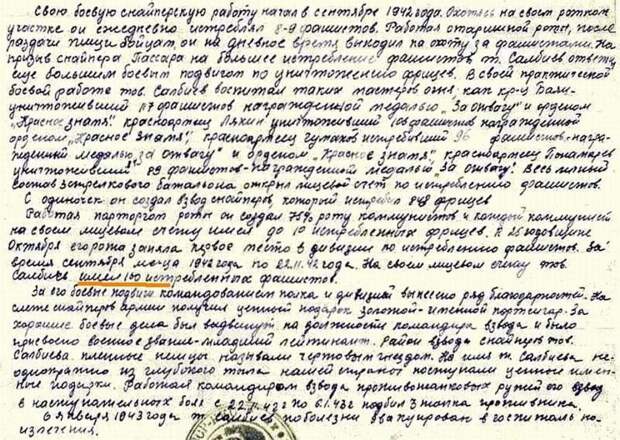 Свою боевую снайперскую работу начал в сентябре 1942 года. Охотясь на своем ротном
участке он ежедневно истреблял 8-9 фашистов. Работая старшиной роты, после
раздачи пищи бойцам, он на дневное время выходил на охоту за фашистами. На
призыв снайпера Пассара на большее истребление фашистов т. Салбиев ответил
еще большим боевым подвигом по уничтожению фрицев. В своей практической
боевой работе тов. Салбиев воспитал таких мастеров огня как кр-ц
уничтоживший 117 фашистов награжденный медалью "За отвагу" и орденом
"Красное знамя", красноармеец Лякин уничтоживший 108 фашистов награжденный
орденом "Красное знамя", красноармеец истребивший 96 фашистов-награ-
жденный медалью "за отвагу" и орденом "Красное знамя", красноармеец Понамарев
уничтоживший 89 фашистов-награжденный медалью "За отвагу". Весь личный
состав 3 стрелкового батальона открыл лицевой счет по истреблению фашистов.
С одиночек он создал взвод снайперов, который истребил 848 фрицев
Работая парторгом роты он создал 75% роту коммунистов и каждый коммунист
на своем лицевом счету имел до 10 истребленных фрицев. К 25 годовщине
Октября его рота заняла первое место в дивизии по истреблению фашистов. За
время сентября м-ца 1942 года по 22.11.42 года. На своем лицевом счету тов.
Салбиев имел 130 истребленных фашистов.
За его боевые подвиги командованием полка и дивизией вынесено ряд благодарностей. На
слете снайперов армии получил ценный подарок золотой-именной портсигар. За
хорошие боевые дела был выдвинут на должность командира взвода и было
присвоено военное звание-младший лейтинант. Район взвода снайперов тов.
Салбиева. пленные немцы называли чертовым гнездом. На имя т. Салбиева не-
однократно из глубокого тыла нашей страны поступали ценные имен-
ные подарки. Работая командиром взвода противотанковых ружей его взвод
в наступательных боях с 22.11.42г по 6.1.43г подбил 3 танка противника.
6 января 1943 года т. Салбиев по болезни эвакуирован в госпиталь на
излечения.